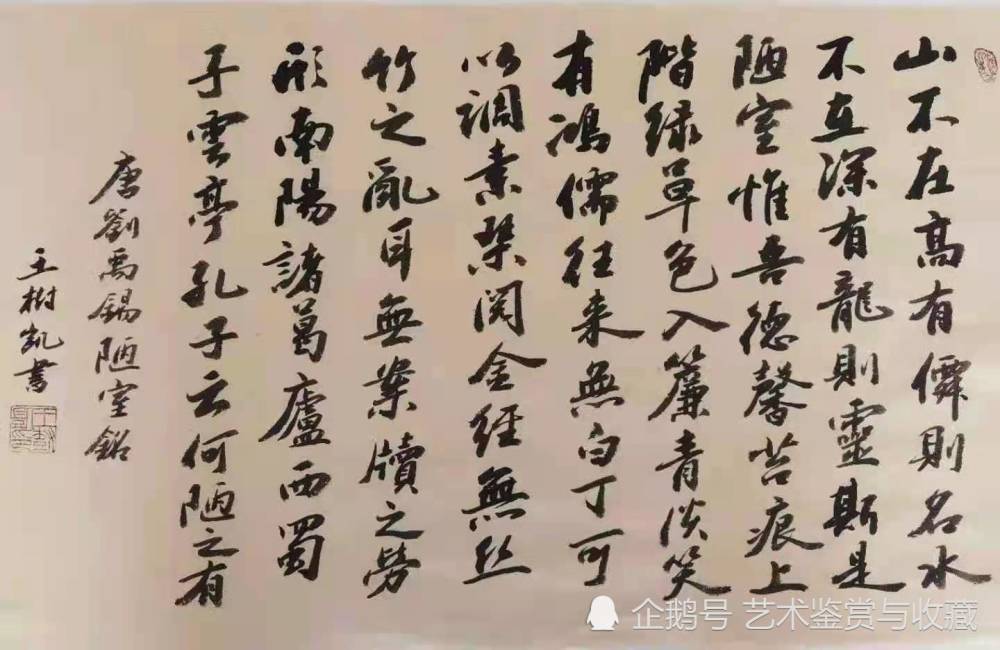 山不在高有僊則名水
不在深有龍則靈斯是
陋室惟吾德馨苔痕上
階绿草色入簾青淡笑
有鴻儒往来無白丁可
以調素琴閱金經無丝
竹之亂耳無案牘之勞
形南陽諸葛廬西蜀
子雲亭孔子云何陋之有
唐劉禹錫陋室銘
王樹凱書
企鹅号 艺术鉴赏与收藏